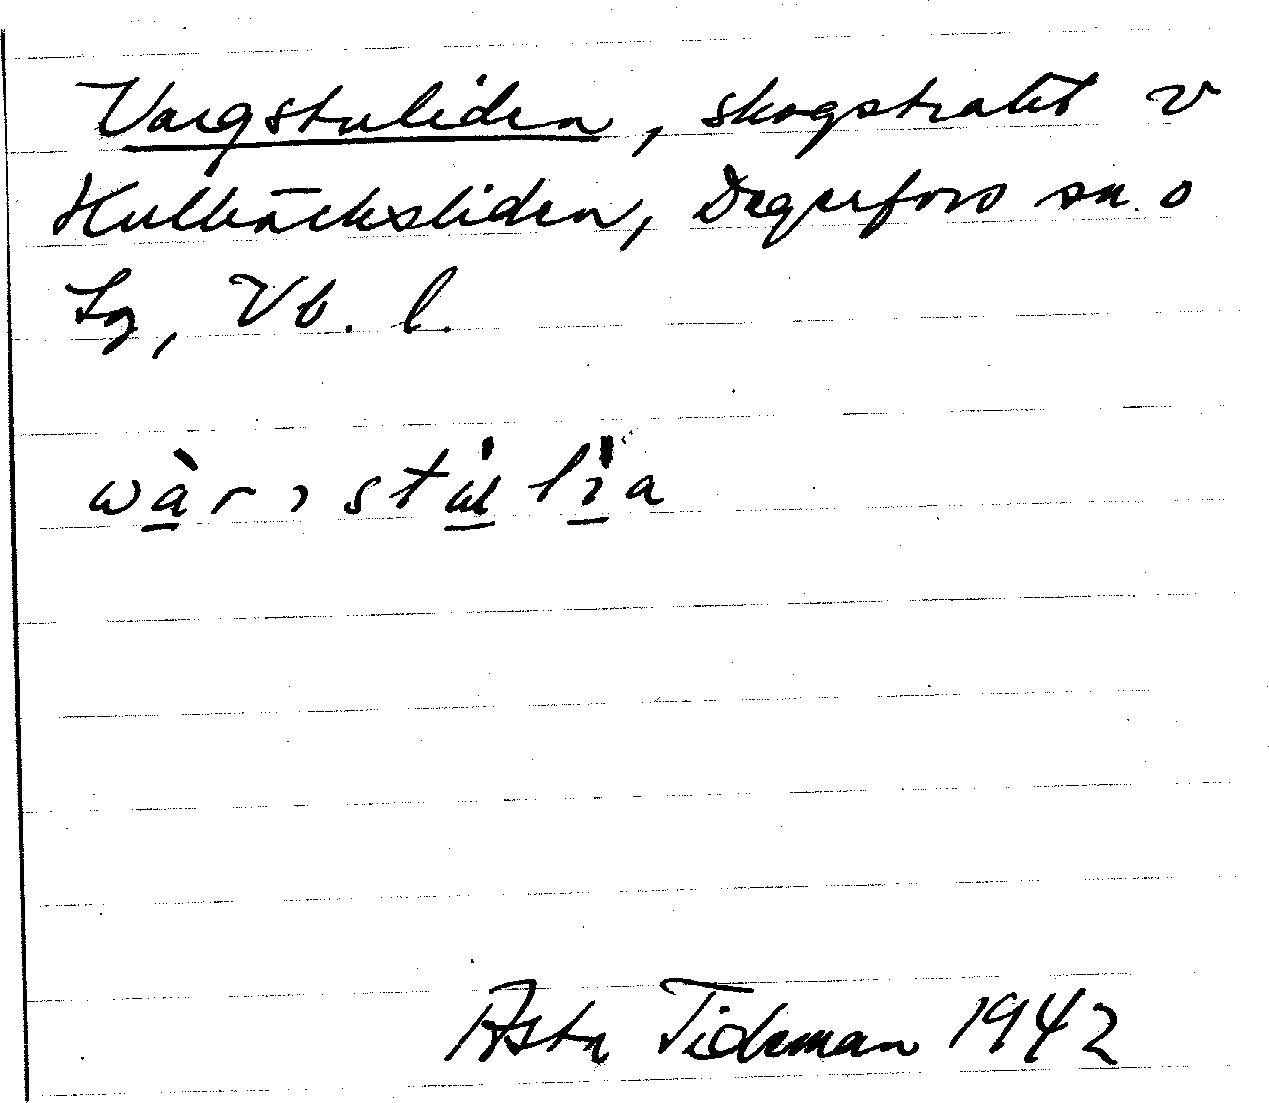 Vargstuliden, skogstrakt v
Hulbäcksliden, Degerfors sn o
Lg, Vb. l.
wàr ı stu̇ lı̇a
Asta Tideman 1942